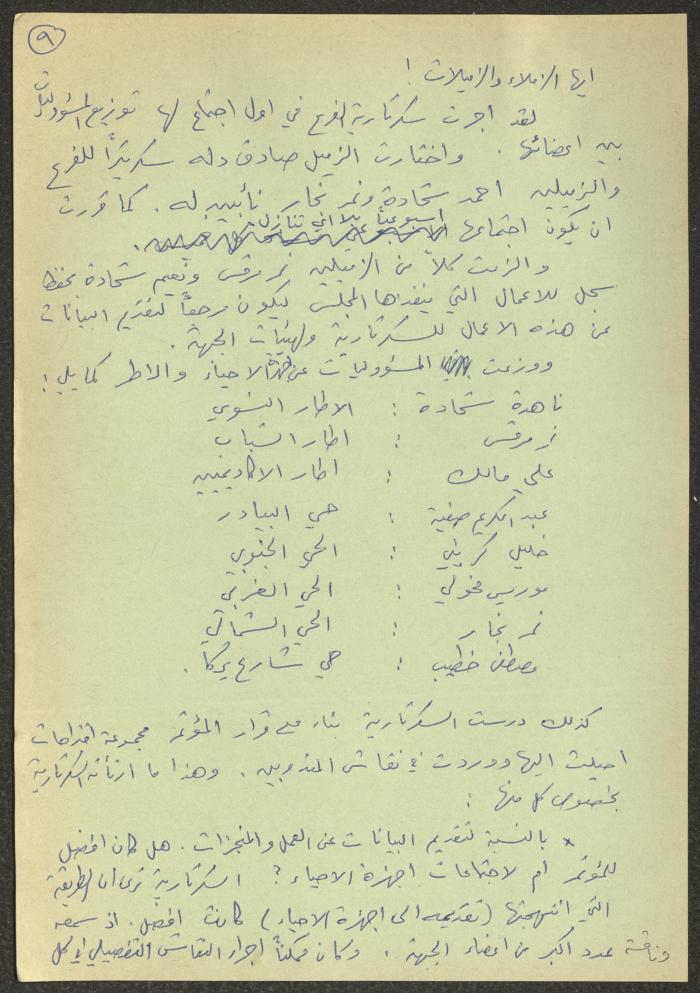 ٩
ايها الزملاء والزميلات !
لقد اجرت سكرتارية الفرع في اول اجتماع لها توزيع المسؤوليات
بين اعضائها . واختارت الزميل صادق دله سكرتيرًا للفرع
والزميلين احمد شحادة ونمر نجار نائبين له . كما قررت
ان يكون اجتماعها اسبوعيًا بلا اي تنازل .
والزمت كلاً من الزميلين نمر مرقس ونعيم شحادة بحفظ
سجل للاعمال التي ينفذها المجلس ليكون مرجعًا لتقديم البيانات
عن هذه الاعمال للسكرتارية ولهيئات الجبهة .
ووزعت المسؤوليات عن اجهزة الاحياء والاطر كما يلي :
ناهدة شحادة : الاطار النسوي
نمر مرقس : اطار الشباب
علي مالك : اطار الاكاديميين
عبد الكريم صفية : حي البيادر
خليل كريني : الحي الجنوبي
موريس مخولي : الحي الغربي
نمر نجار : الحي الشمالي
مصطفى خطيب : حي شارع يركا .
كذلك درست السكرتارية بناء على قرار المؤتمر مجموعة اقتراحات
احيلت اليها ووردت في نقاش المندوبين . وهذا ما ارتأته السكرتارية
بخصوص كل منها :
* بالنسبة لتقديم البيانات عن العمل والمنجزات . هل كان افضل
للمؤتمر ام لاجتماعات اجهزة الاحياء ؟ السكرتارية ترى ان الطريقة
التي انتهجتها (تقديمه الى اجهزة الاحياء) كانت افضل . اذ سمعه
وناقشه عدد اكبر من اعضاء الجبهة . وكان ممكنًا اجراء النقاش التفصيلي في كل